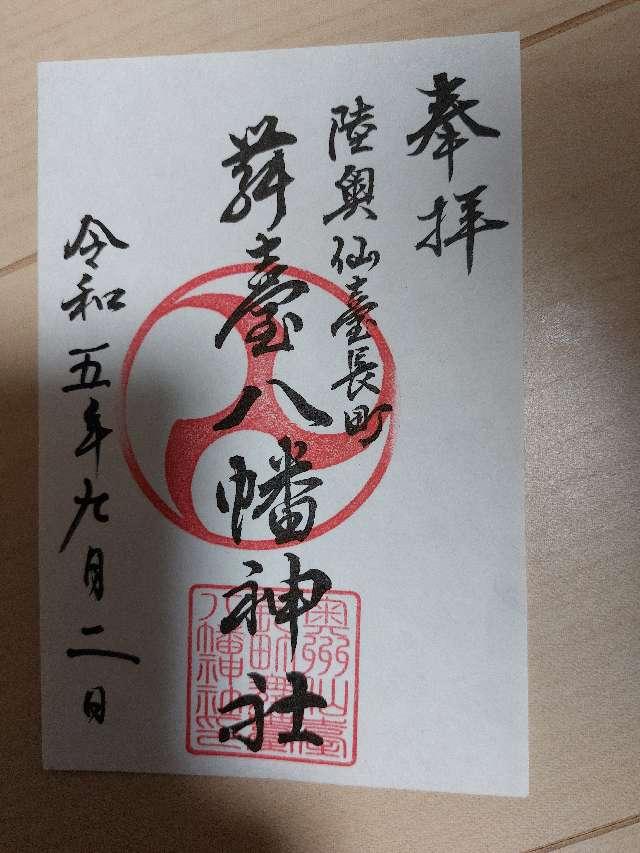 奉拝
陸奥仙臺長町
舞臺八幡神社
令和五年九月二日